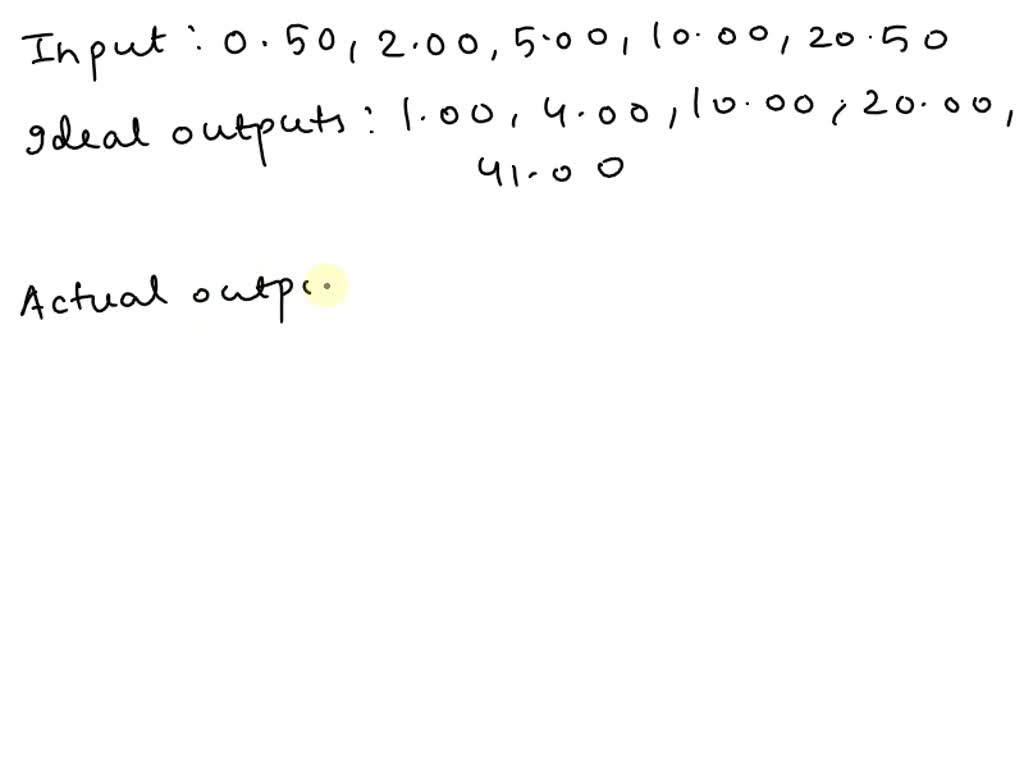 Input : 0.50, 2.00, 5.00, 10.00, 20.50
Ideal outputs : 1.00, 4.00, 10.00, 20.00,
41.00
Actual outp